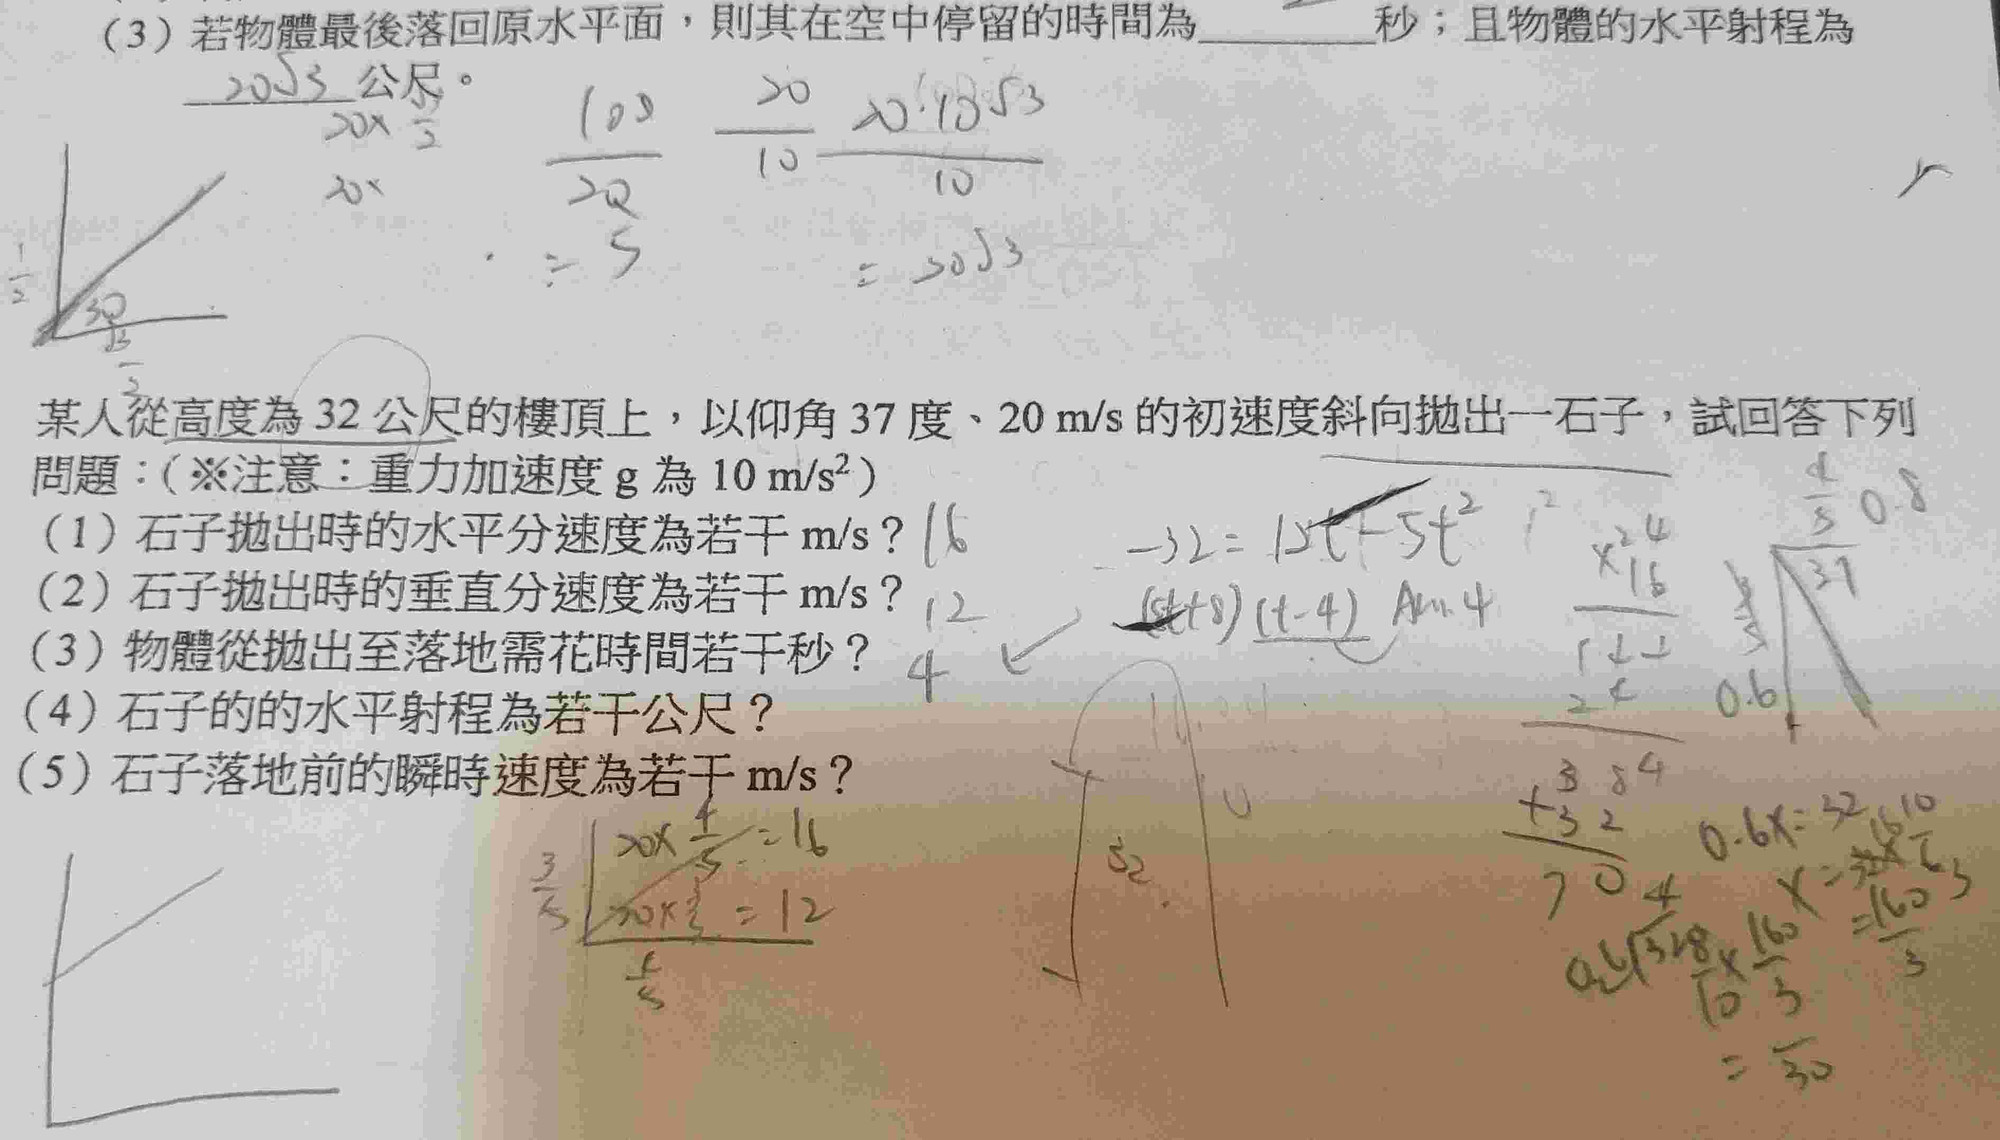 (3)若物體最後落回原水平面，則其在空中停留的時間為______秒；且物體的水平射程為
20√3 公尺。
20×
20×
20
20·10√3
20
10
10
= 5
= 20√3
1/2
30
某人從高度為 32 公尺的樓頂上，以仰角 37 度、20 m/s 的初速度斜向拋出一石子，試回答下列
問題：(※注意：重力加速度 g 為 10 m/s²)
(1)石子拋出時的水平分速度為若干 m/s？16
(2)石子拋出時的垂直分速度為若干 m/s？12
(3)物體從拋出至落地需花時間若干秒？4
(4)石子的的水平射程為若干公尺？
(5)石子落地前的瞬時速度為若干 m/s？
-32 = 12t - 5t²
(5t+8)(t-4) Ans. 4
24
×16
144
24
384
+32
70
4/5 0.8
37
0.6
20×4/5 = 16
20×3/5 = 12
3/5
4/5
32
0.6x = 32
= 160/3
8/10 × 160/3